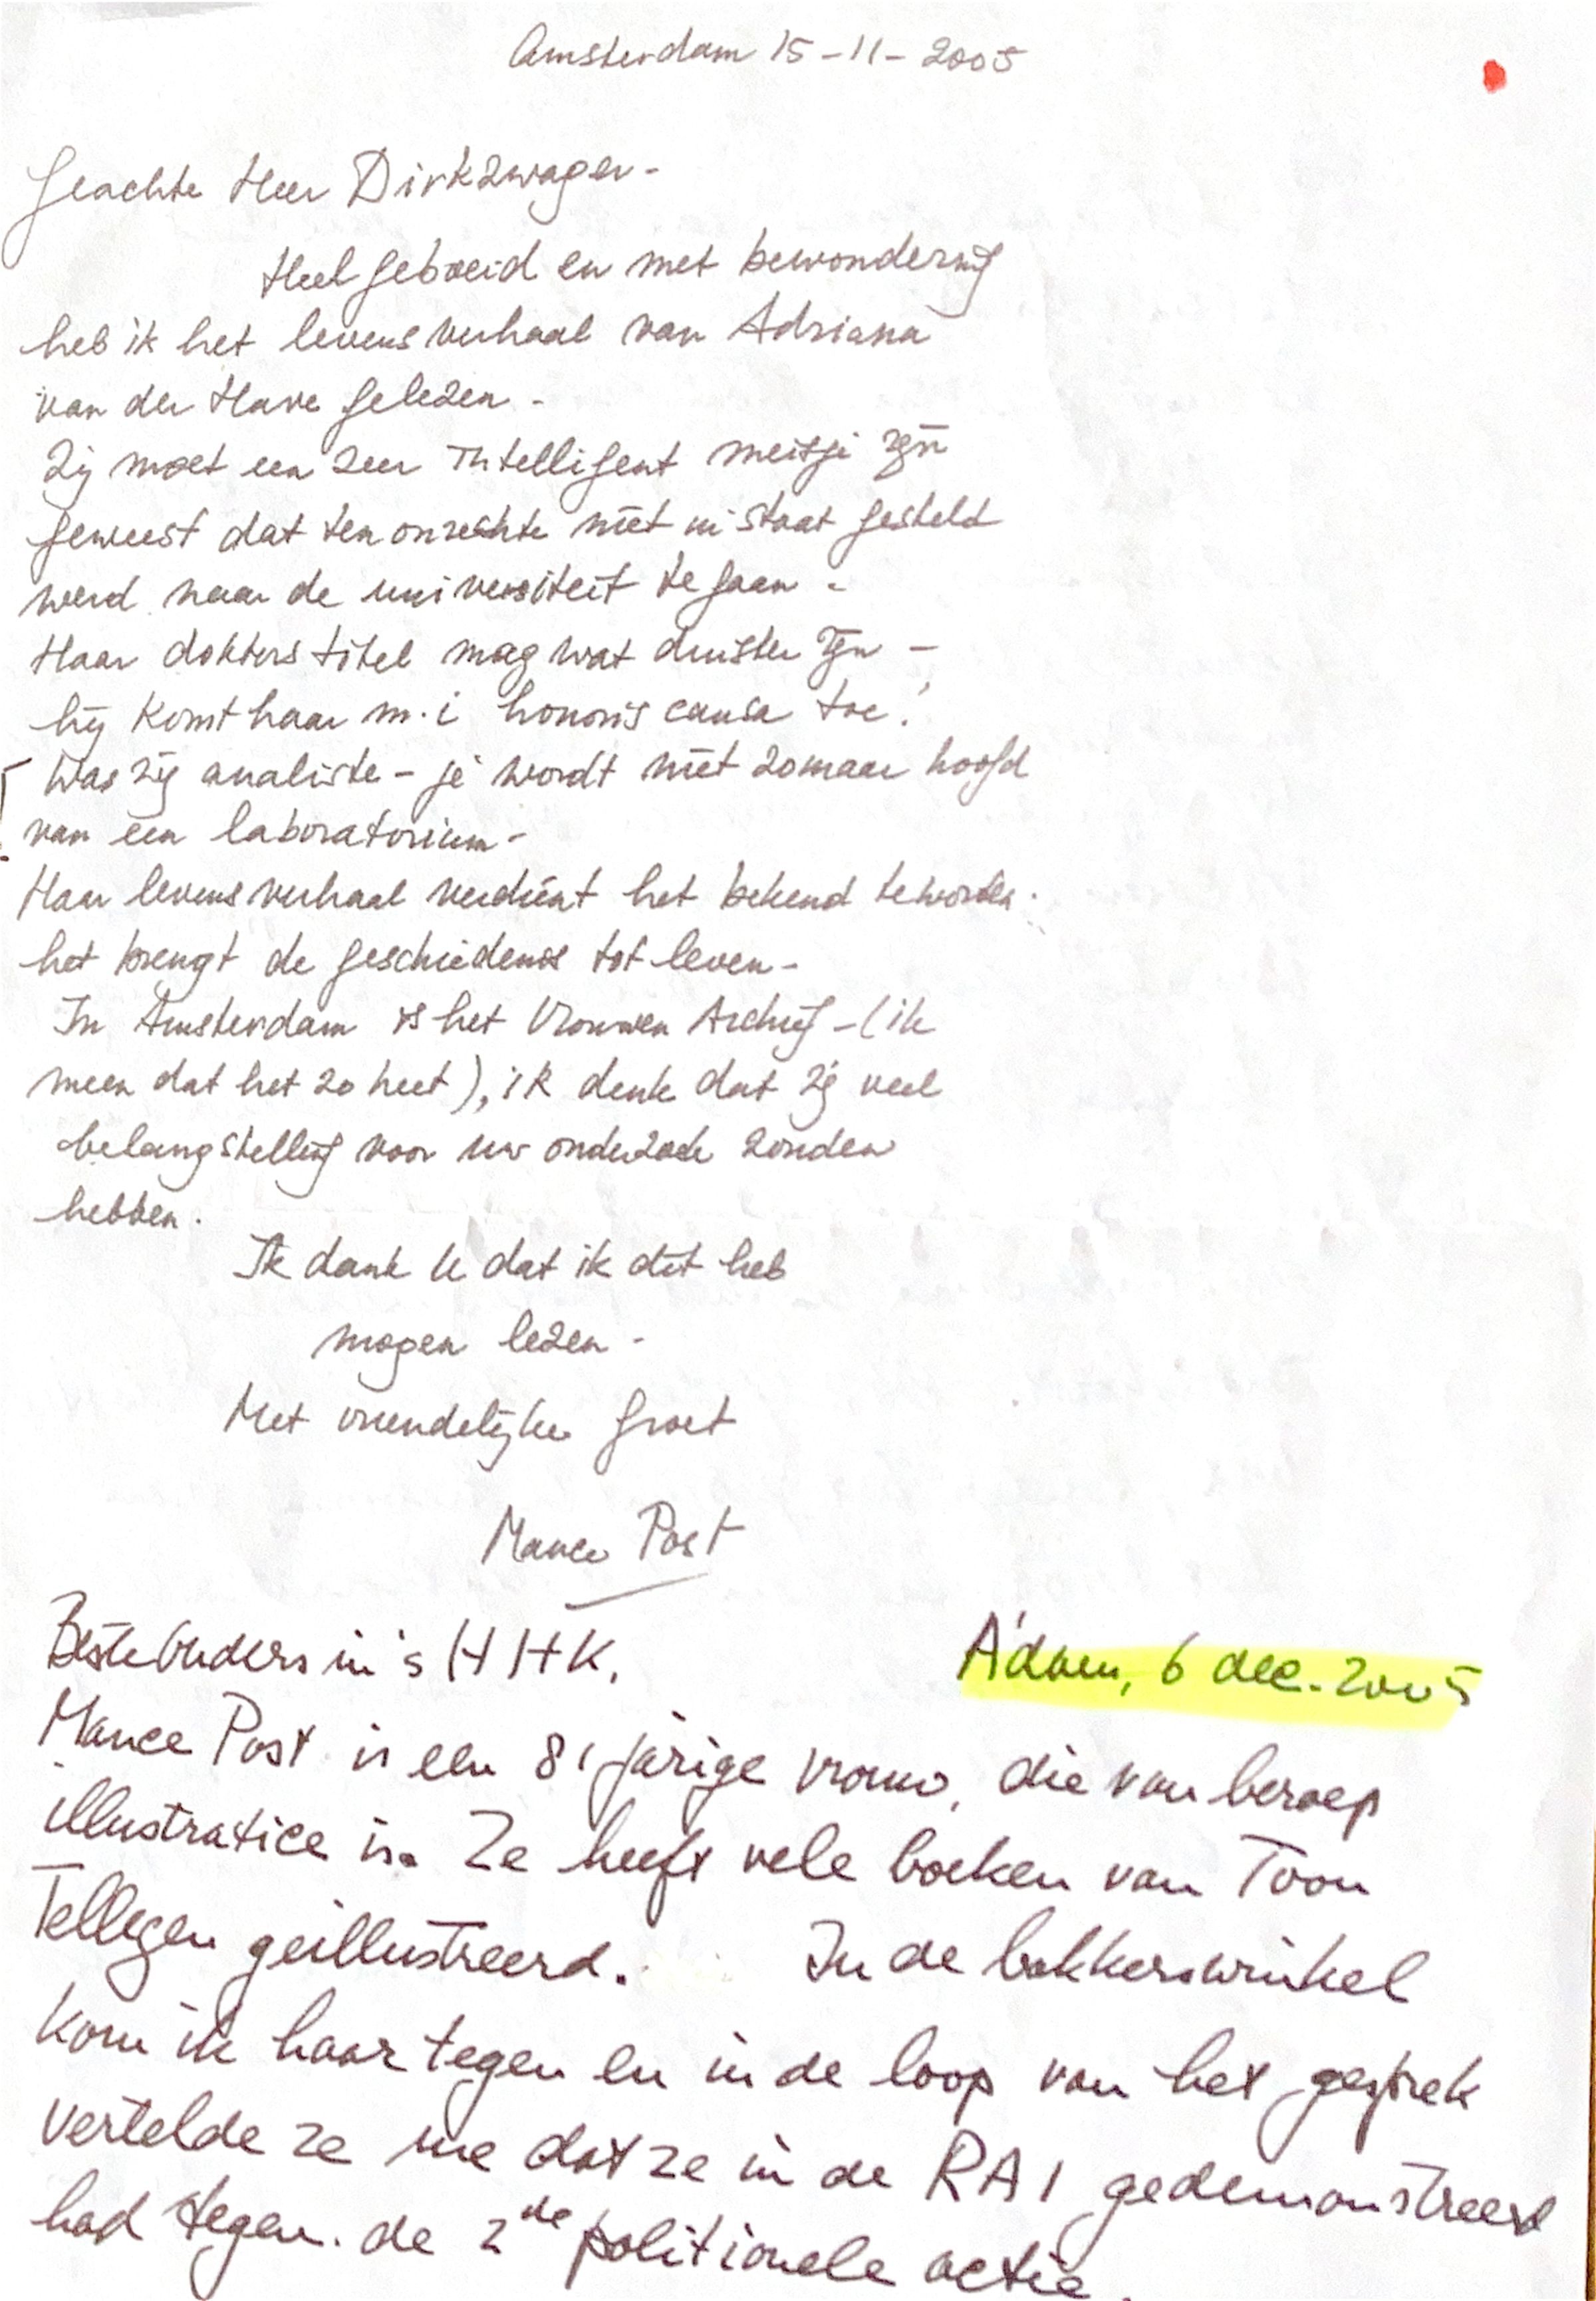 Amsterdam 15-11-2005
Geachte Heer Dirkzwager -
Heel geboeid en met bewondering
heb ik het levensverhaal van Adriana
van der Have gelezen -
Zij moet een zeer intelligent meisje zijn
geweest dat ten onrechte niet in staat gesteld
werd naar de universiteit te gaan -
Haar dokters titel mag wat duister zijn -
hij komt haar m.i honoris causa toe!
Was zij analiste - je wordt niet zomaar hoofd
van een laboratorium -
Haar levensverhaal verdient het bekend te worden.
het brengt de geschiedenis tot leven -
In Amsterdam is het Vrouwen Archief - (ik
meen dat het zo heet), ik denk dat zij veel
belangstelling voor uw onderzoek zouden
hebben.
Ik dank U dat ik dit heb
mogen lezen -
Met vriendelijke groet
Mance Post
Beste Ouders in 's HHK,
A'dam, 6 dec. 2005
Mance Post is een 81 jarige vrouw, die van beroep
illustratice is. Ze heeft vele boeken van Toon
Tellegen geillustreerd. In de bakkerswinkel
kom ik haar tegen en in de loop van het gesprek
vertelde ze me dat ze in de RAI gedemonstreerd
had tegen de 2de politionele actie.